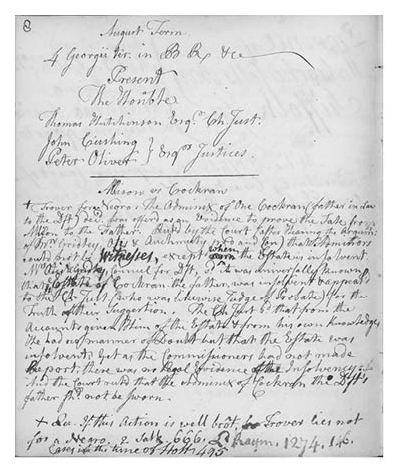 8
August Term
4 Georgii tir. in B R &c
Present
The Honble
Thomas Hutchinson Esqr. Ch. Just.
John Cushing
Peter Oliver } Esqrs Justices.
Allison vs Cockran
+ Trover for a Negro. The Adminix of one Cockran (father in law
to the Dft) decd. from offerd as an Evidence to prove the Sale from
Allison to the Father. Ruled by the Court (after hearing the Arguments
of Mr Gridley, Otis & Auchmuty and on) that Adminstors
could not be Witnesses, except when the Estate is insolvent
Mr Gridley Counsel for Dft, sd. it was universally known
that Estate of Cockran the father, was insolvent & appeald
to the Ch. Just. (who was likewise Judge of Probate) for the
Truth of their Suggestion. The Ch. Just. sd. that from the
Accounts given him of the Estate & from his own knowledge
he had no manner of Doubt but that the Estate was
insolvent. Yet as the Commissioners had not made
Report, there was no legal Evidence of the Insolvency.
And the Court ruled that the Adminix of Cockran the Dfts.
father sh'd not be sworn.
+ Qu. If this Action is well bro't, for Trover lies not
for a Negro. 2. Salk. 666. Ld Raym. 1274. 146.
Cases in the time of Holt 495